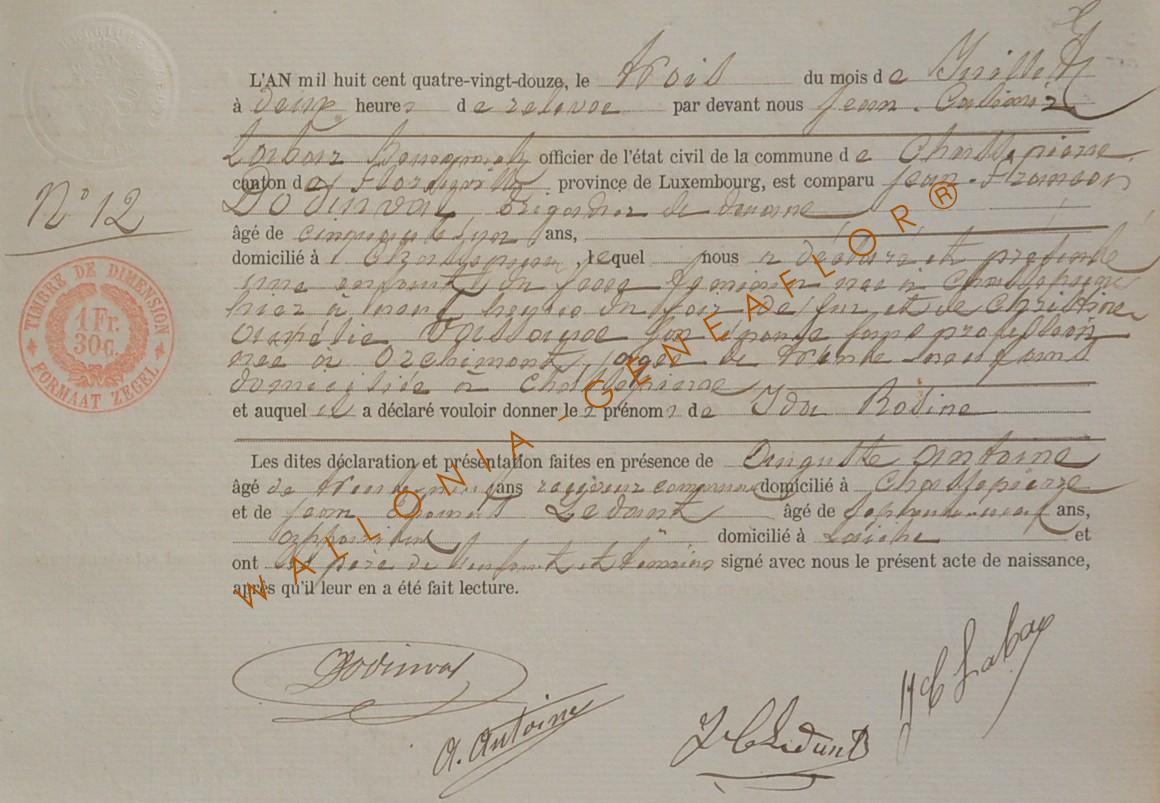 L'AN mil huit cent quatre-vingt-douze, le trois du mois de Juillet
à deux heures de relevée par devant nous Jean
officier de l'état civil de la commune de Chassepierre
canton de Florenville, province de Luxembourg, est comparu Jean-François
Dodinval brigadier de douane
âgé de cinquante ans,
domicilié à Chassepierre, lequel nous a déclaré et présenté
une enfant du sexe féminin née à Chassepierre
hier à heures du soir de lui et de Christine
son épouse sans profession
née à Orchimont, âgée de trente neuf ans
domiciliée à Chassepierre
et auquel il a déclaré vouloir donner les prénoms de Ida Rosine
Les dites déclaration et présentation faites en présence de Auguste Antoine
âgé de trente ans receveur communal domicilié à Chassepierre
et de Jean Ledant âgé de ans,
domicilié à Laiche et
ont les père de l'enfant et témoins signé avec nous le présent acte de naissance,
après qu'il leur en a été fait lecture.
N° 12
TIMBRE DE DIMENSION
1 Fr.
30 C.
FORMAAT ZEGEL
WALLONIA - GENEAFLOR ®
Dodinval
A. Antoine